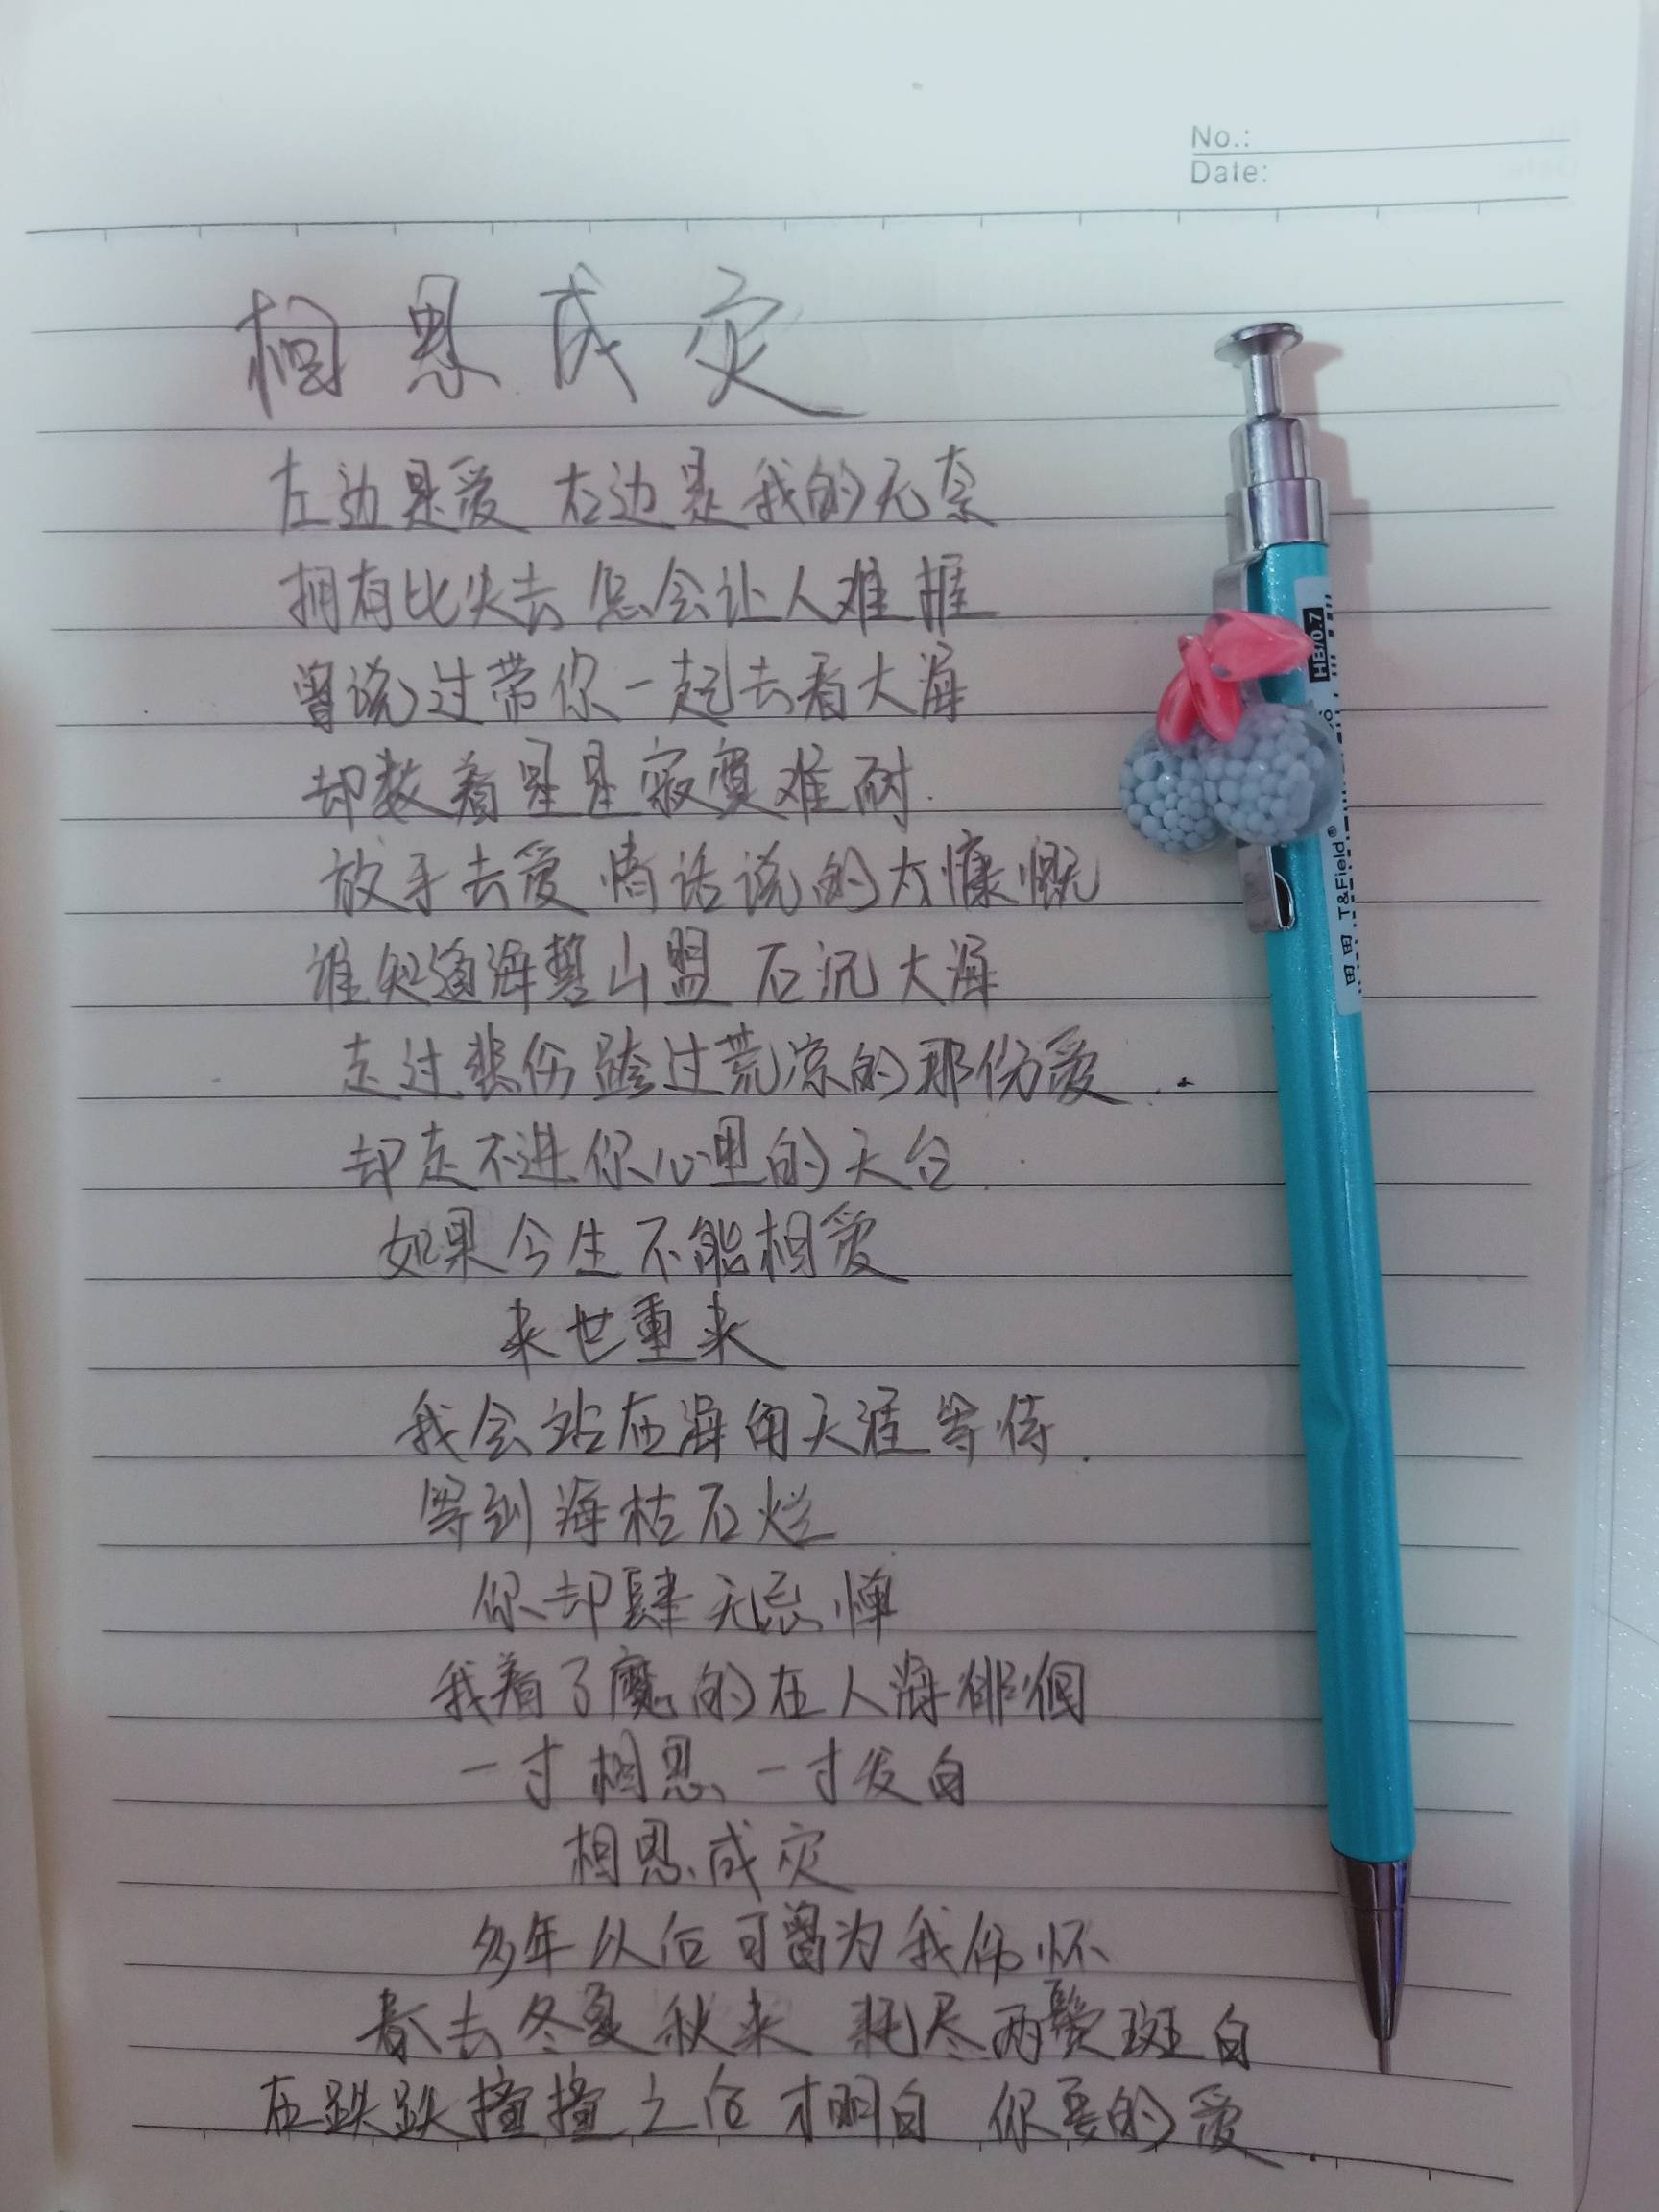 No.:
Date:
相思成灾
左边是爱 右边是我的无奈
拥有比失去怎会让人难捱
曾说过带你一起去看大海
却数着星星寂寞难耐.
放手去爱 情话说的太慷慨
谁知道海誓山盟 石沉大海
走过悲伤跨过荒凉的那份爱.
却走不进你心里的天台.
如果今生不能相爱
来世重来
我会站在海角天涯等待.
等到海枯石烂
你却肆无忌惮
我着了魔的在人海徘徊
一寸相思 一寸发白
相思成灾
多年以后可曾为我伤怀
春去冬夏秋来 耗尽两鬓斑白
在跌跌撞撞之后才明白 你要的爱.
HB/0.7
田田 T&Field®